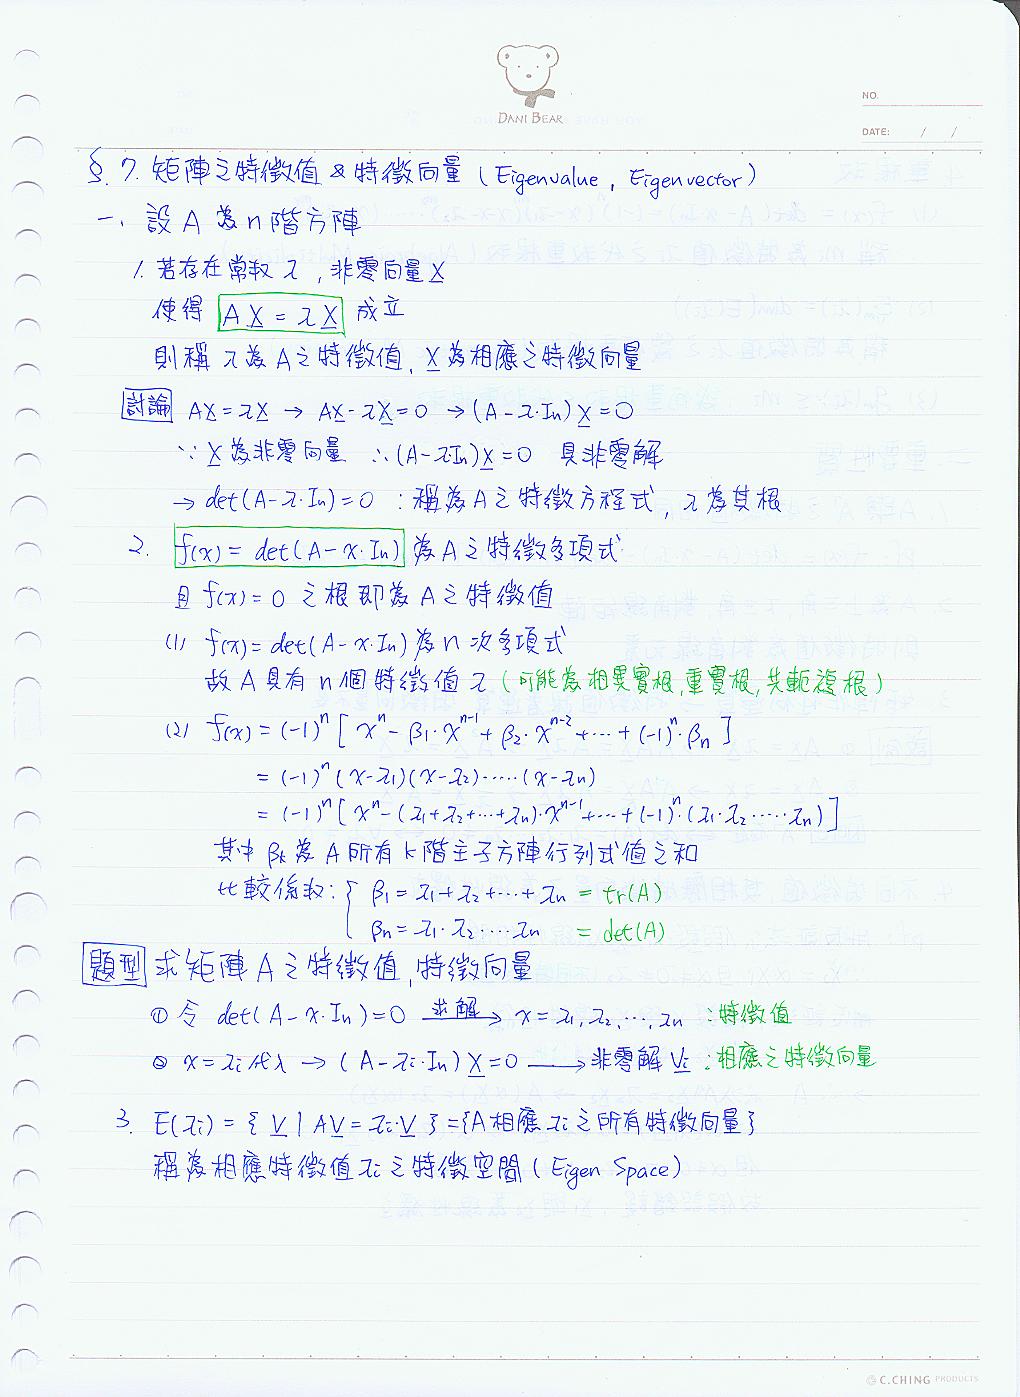 DANI BEAR
NO.
DATE: / /
§.7. 矩陣之特徵值 & 特徵向量 (Eigenvalue, Eigenvector)
一、設 A 為 n 階方陣
1. 若存在常數 λ, 非零向量 X
使得 AX = λX 成立
則稱 λ 為 A 之特徵值, X 為相應之特徵向量
討論 AX = λX → AX - λX = 0 → (A - λ·In)X = 0
∵ X 為非零向量 ∴ (A - λIn)X = 0 具非零解
→ det(A - λ·In) = 0 : 稱為 A 之特徵方程式, λ 為其根
2. f(x) = det(A - x·In) 為 A 之特徵多項式
且 f(x) = 0 之根即為 A 之特徵值
(1) f(x) = det(A - x·In) 為 n 次多項式
故 A 具有 n 個特徵值 λ (可能為相異實根, 重實根, 共軛複根)
(2) f(x) = (-1)^n [ x^n - β1·x^{n-1} + β2·x^{n-2} + ... + (-1)^n·βn ]
= (-1)^n (x-λ1)(x-λ2)·····(x-λn)
= (-1)^n [ x^n - (λ1+λ2+...+λn)·x^{n-1} + ... + (-1)^n·(λ1·λ2·····λn) ]
其中 βk 為 A 所有 k 階主子方陣行列式值之和
比較係數: { β1 = λ1+λ2+...+λn = tr(A)
βn = λ1·λ2····λn = det(A)
題型 求矩陣 A 之特徵值, 特徵向量
① 令 det(A - x·In) = 0 求解→ x = λ1, λ2, ..., λn : 特徵值
② x = λi 代入 → (A - λi·In)X = 0 → 非零解 Vi : 相應之特徵向量
3. E(λi) = { V | AV = λi·V } = {A 相應 λi 之所有特徵向量}
稱為相應特徵值 λi 之特徵空間 (Eigen Space)
C.CHING PRODUCTS